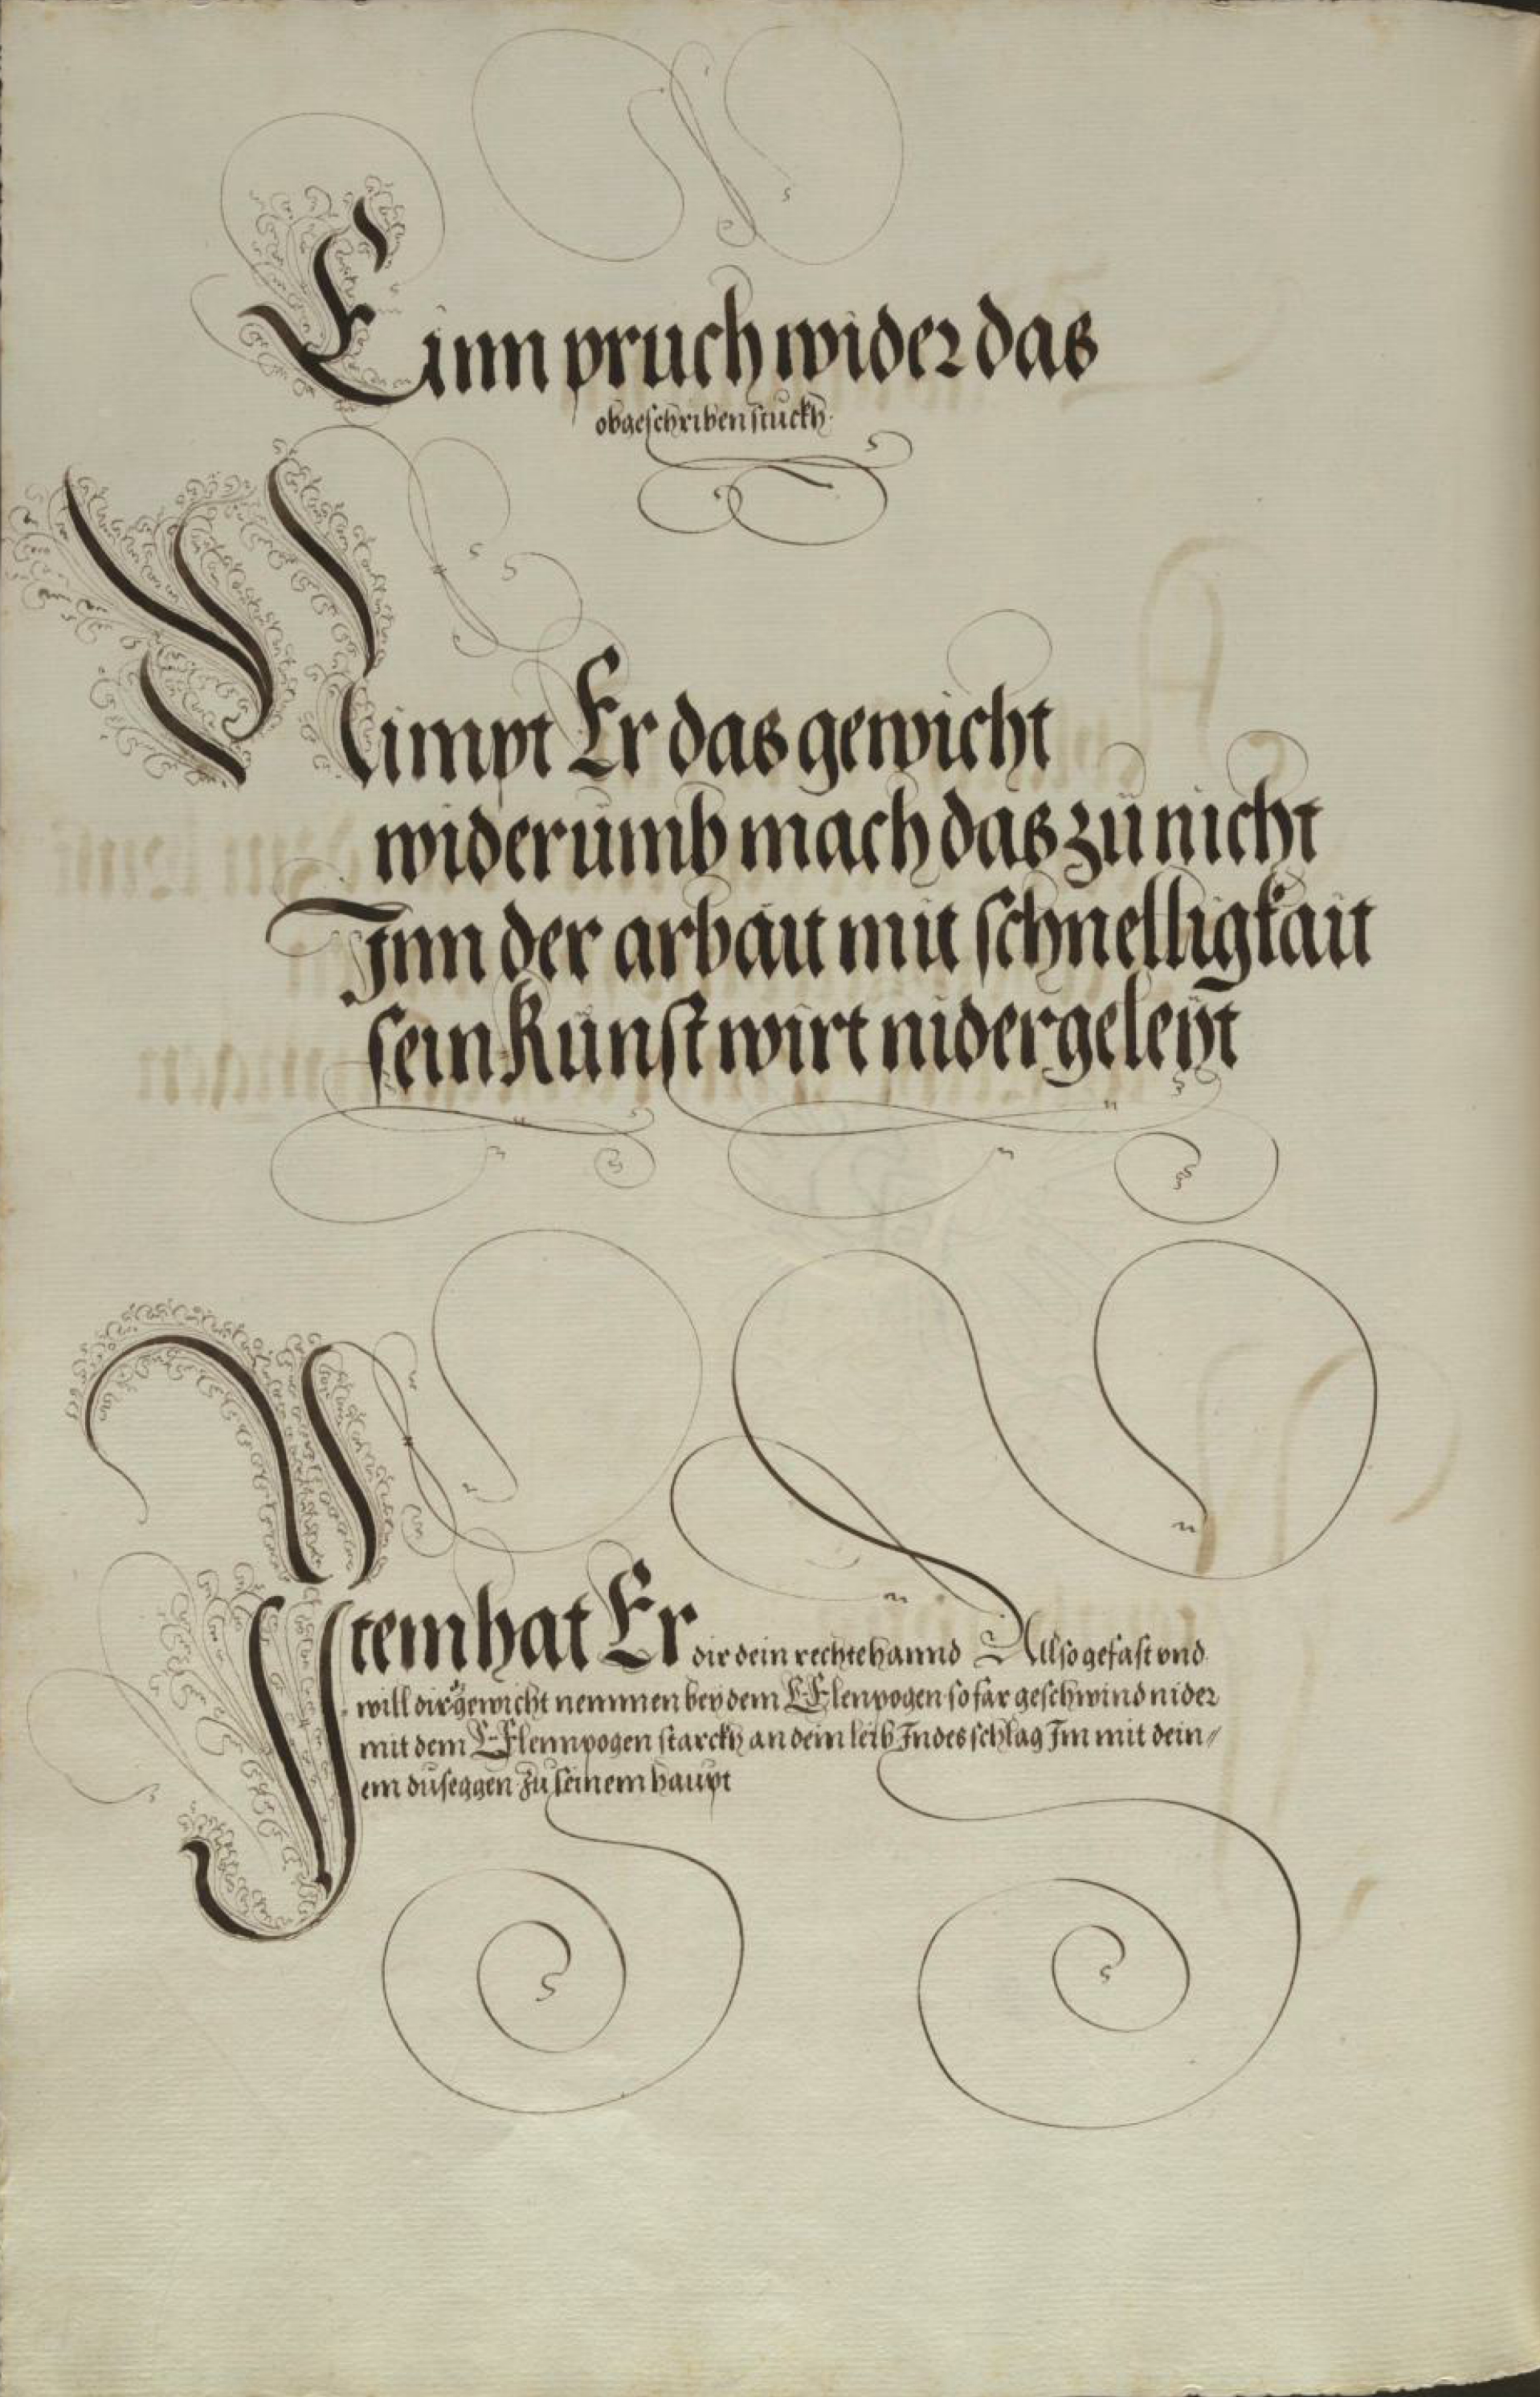 Einn pruch wider das
obgeschriben stuckh.
Nimpt Er das gewicht
widerumb mach das zu nicht
Inn der arbait mit schnelligkait
sein Kunst wirt nidergeleyt
Item hat Er dir dein rechte hannd Allso gefast vnd
will dir gewicht nemmen bey dem Elenpogen so far geschwind nider
mit dem Elennpogen starckh an dein leib Indes schlag Im mit dein〃
em duseggen zu seinem haupt